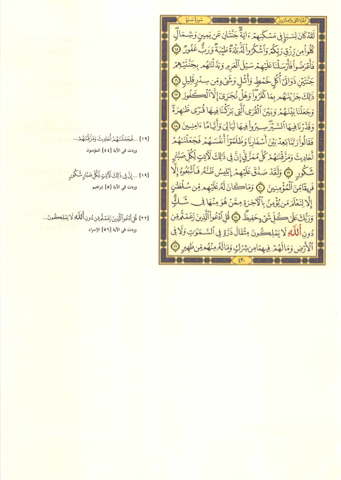 لَقَدْ كَانَ لِسَبَإٍ فِي مَسْكَنِهِمْ ءَايَةٌ جَنَّتَانِ عَن يَمِينٍ وَشِمَالٍ
كُلُوا۟ مِن رِّزْقِ رَبِّكُمْ وَٱشْكُرُوا۟ لَهُۥ بَلْدَةٌ طَيِّبَةٌ وَرَبٌّ غَفُورٌ ١٥
فَأَعْرَضُوا۟ فَأَرْسَلْنَا عَلَيْهِمْ سَيْلَ ٱلْعَرِمِ وَبَدَّلْنَٰهُم بِجَنَّتَيْهِمْ
جَنَّتَيْنِ ذَوَاتَىْ أُكُلٍ خَمْطٍ وَأَثْلٍ وَشَىْءٍ مِّن سِدْرٍ قَلِيلٍ ١٦
ذَٰلِكَ جَزَيْنَٰهُم بِمَا كَفَرُوا۟ وَهَلْ نُجَٰزِىٓ إِلَّا ٱلْكَفُورَ ١٧
وَجَعَلْنَا بَيْنَهُمْ وَبَيْنَ ٱلْقُرَى ٱلَّتِى بَٰرَكْنَا فِيهَا قُرًى ظَٰهِرَةً
وَقَدَّرْنَا فِيهَا ٱلسَّيْرَ سِيرُوا۟ فِيهَا لَيَالِىَ وَأَيَّامًا ءَامِنِينَ ١٨
فَقَالُوا۟ رَبَّنَا بَٰعِدْ بَيْنَ أَسْفَارِنَا وَظَلَمُوٓا۟ أَنفُسَهُمْ فَجَعَلْنَٰهُمْ
أَحَادِيثَ وَمَزَّقْنَٰهُمْ كُلَّ مُمَزَّقٍ إِنَّ فِى ذَٰلِكَ لَءَايَٰتٍ لِّكُلِّ صَبَّارٍ
شَكُورٍ ١٩ وَلَقَدْ صَدَّقَ عَلَيْهِمْ إِبْلِيسُ ظَنَّهُۥ فَٱتَّبَعُوهُ إِلَّا
فَرِيقًا مِّنَ ٱلْمُؤْمِنِينَ ٢٠ وَمَا كَانَ لَهُۥ عَلَيْهِم مِّن سُلْطَٰنٍ
إِلَّا لِنَعْلَمَ مَن يُؤْمِنُ بِٱلْءَاخِرَةِ مِمَّنْ هُوَ مِنْهَا فِى شَكٍّ
وَرَبُّكَ عَلَىٰ كُلِّ شَىْءٍ حَفِيظٌ ٢١ قُلِ ٱدْعُوا۟ ٱلَّذِينَ زَعَمْتُم مِّن
دُونِ ٱللَّهِ لَا يَمْلِكُونَ مِثْقَالَ ذَرَّةٍ فِى ٱلسَّمَٰوَٰتِ وَلَا فِى
ٱلْأَرْضِ وَمَا لَهُمْ فِيهِمَا مِن شِرْكٍ وَمَا لَهُۥ مِنْهُم مِّن ظَهِيرٍ ٢٢
٤٣٠
[١٩] ... فَجَعَلْنَٰهُمْ أَحَادِيثَ وَمَزَّقْنَٰهُمْ...
وردت في الآية [٤٤] المؤمنون
[١٩] ... إِنَّ فِى ذَٰلِكَ لَءَايَٰتٍ لِّكُلِّ صَبَّارٍ شَكُورٍ
وردت في الآية [٥] إبراهيم
[٢٢] قُلِ ٱدْعُوا۟ ٱلَّذِينَ زَعَمْتُم مِّن دُونِ ٱللَّهِ لَا يَمْلِكُونَ...
وردت في الآية [٥٦] الإسراء